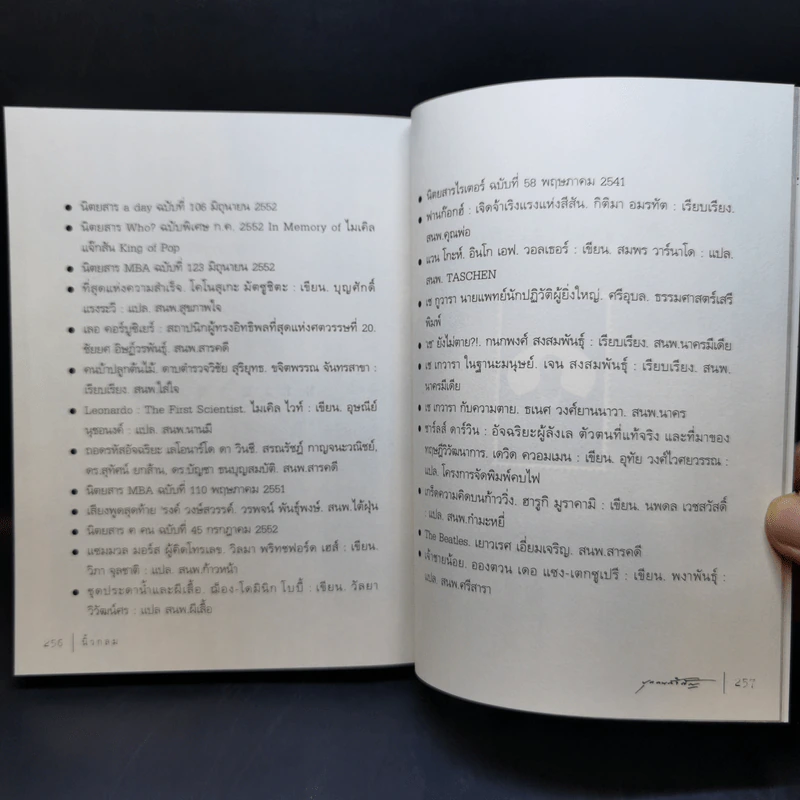 ● นิตยสาร a day ฉบับที่ 106 มิถุนายน 2552
● นิตยสาร Who? ฉบับพิเศษ ก.ค. 2552 In Memory of ไมเคิล
แจ๊กสัน King of Pop
● นิตยสาร MBA ฉบับที่ 123 มิถุนายน 2552
● ที่สุดแห่งความสำเร็จ. โคโนสุเกะ มัตซูชิตะ : เขียน. บุญศักดิ์
แรงระวี : แปล. สนพ.สุขภาพใจ
● เลอ คอร์บูซิเยร์ : สถาปนิกผู้ทรงอิทธิพลที่สุดแห่งศตวรรษที่ 20.
ชัยยศ อิษฎ์วรพันธุ์. สนพ.สารคดี
● คนบ้าปลูกต้นไม้. ดาบตำรวจวิชัย สุริยุทธ. ขจิตพรรณ จันทรสาขา :
เรียบเรียง. สนพ.ใส่ใจ
● Leonardo : The First Scientist. ไมเคิล ไวท์ : เขียน. อุษณีย์
นุชอนงค์ : แปล. สนพ.นานมี
● ถอดรหัสอัจฉริยะ เลโอนาร์โด ดา วินชี. สรณรัชฎ์ กาญจนะวณิชย์,
ดร.สุทัศน์ ยกส้าน, ดร.บัญชา ธนบุญสมบัติ. สนพ.สารคดี
● นิตยสาร MBA ฉบับที่ 110 พฤษภาคม 2551
● เสียงพูดสุดท้าย 'รงค์ วงษ์สวรรค์. วรพจน์ พันธุ์พงษ์. สนพ.ไต้ฝุ่น
● นิตยสาร ค คน ฉบับที่ 45 กรกฎาคม 2552
● แซมมวล มอร์ส ผู้คิดโทรเลข. วิลมา พริทชฟอร์ด เฮส์ : เขียน.
วิภา จุลชาติ : แปล. สนพ.ก้าวหน้า
● ชุดประดาน้ำและผีเสื้อ. ฌ็อง-โดมินิก โบบี้ : เขียน. วัลยา
วิวัฒน์ศร : แปล สนพ.ผีเสื้อ
256 | นิ้วกลม
● นิตยสารไรเตอร์ ฉบับที่ 58 พฤษภาคม 2541
● ฟานก๊อกฮ์ : เจิดจ้าเริงแรงแห่งสีสัน. กิติมา อมรทัต : เรียบเรียง.
สนพ.คุณพ่อ
● แวน โกะห์. อินโก เอฟ. วอลเธอร์ : เขียน. สมพร วาร์นาโด : แปล.
สนพ. TASCHEN
● เช กูวารา นายแพทย์นักปฏิวัติผู้ยิ่งใหญ่. ศรีอุบล. ธรรมศาสตร์เสรี
พิมพ์
● 'เช' ยังไม่ตาย?!. กนกพงศ์ สงสมพันธุ์ : เรียบเรียง. สนพ.นาครมีเดีย
● เช เกวารา ในฐานะมนุษย์. เจน สงสมพันธุ์ : เรียบเรียง. สนพ.
นาครมีเดีย
● เช เกวารา กับความตาย. ธเนศ วงศ์ยานนาวา. สนพ.นาคร
● ชาร์ลส์ ดาร์วิน : อัจฉริยะผู้ลังเล ตัวตนที่แท้จริง และที่มาของ
ทฤษฎีวิวัฒนาการ. เดวิด ควอมเมน : เขียน. อุทัย วงศ์ไวศยวรรณ :
แปล. โครงการจัดพิมพ์คบไฟ
● เกร็ดความคิดบนก้าววิ่ง. ฮารูกิ มูราคามิ : เขียน. นพดล เวชสวัสดิ์
: แปล. สนพ.กำมะหยี่
● The Beatles. เยาวเรศ เอี่ยมเจริญ. สนพ.สารคดี
● เจ้าชายน้อย. อองตวน เดอ แซง-เตกซูเปรี : เขียน. พงาพันธุ์ :
แปล. สนพ.ศรีสารา
| 257